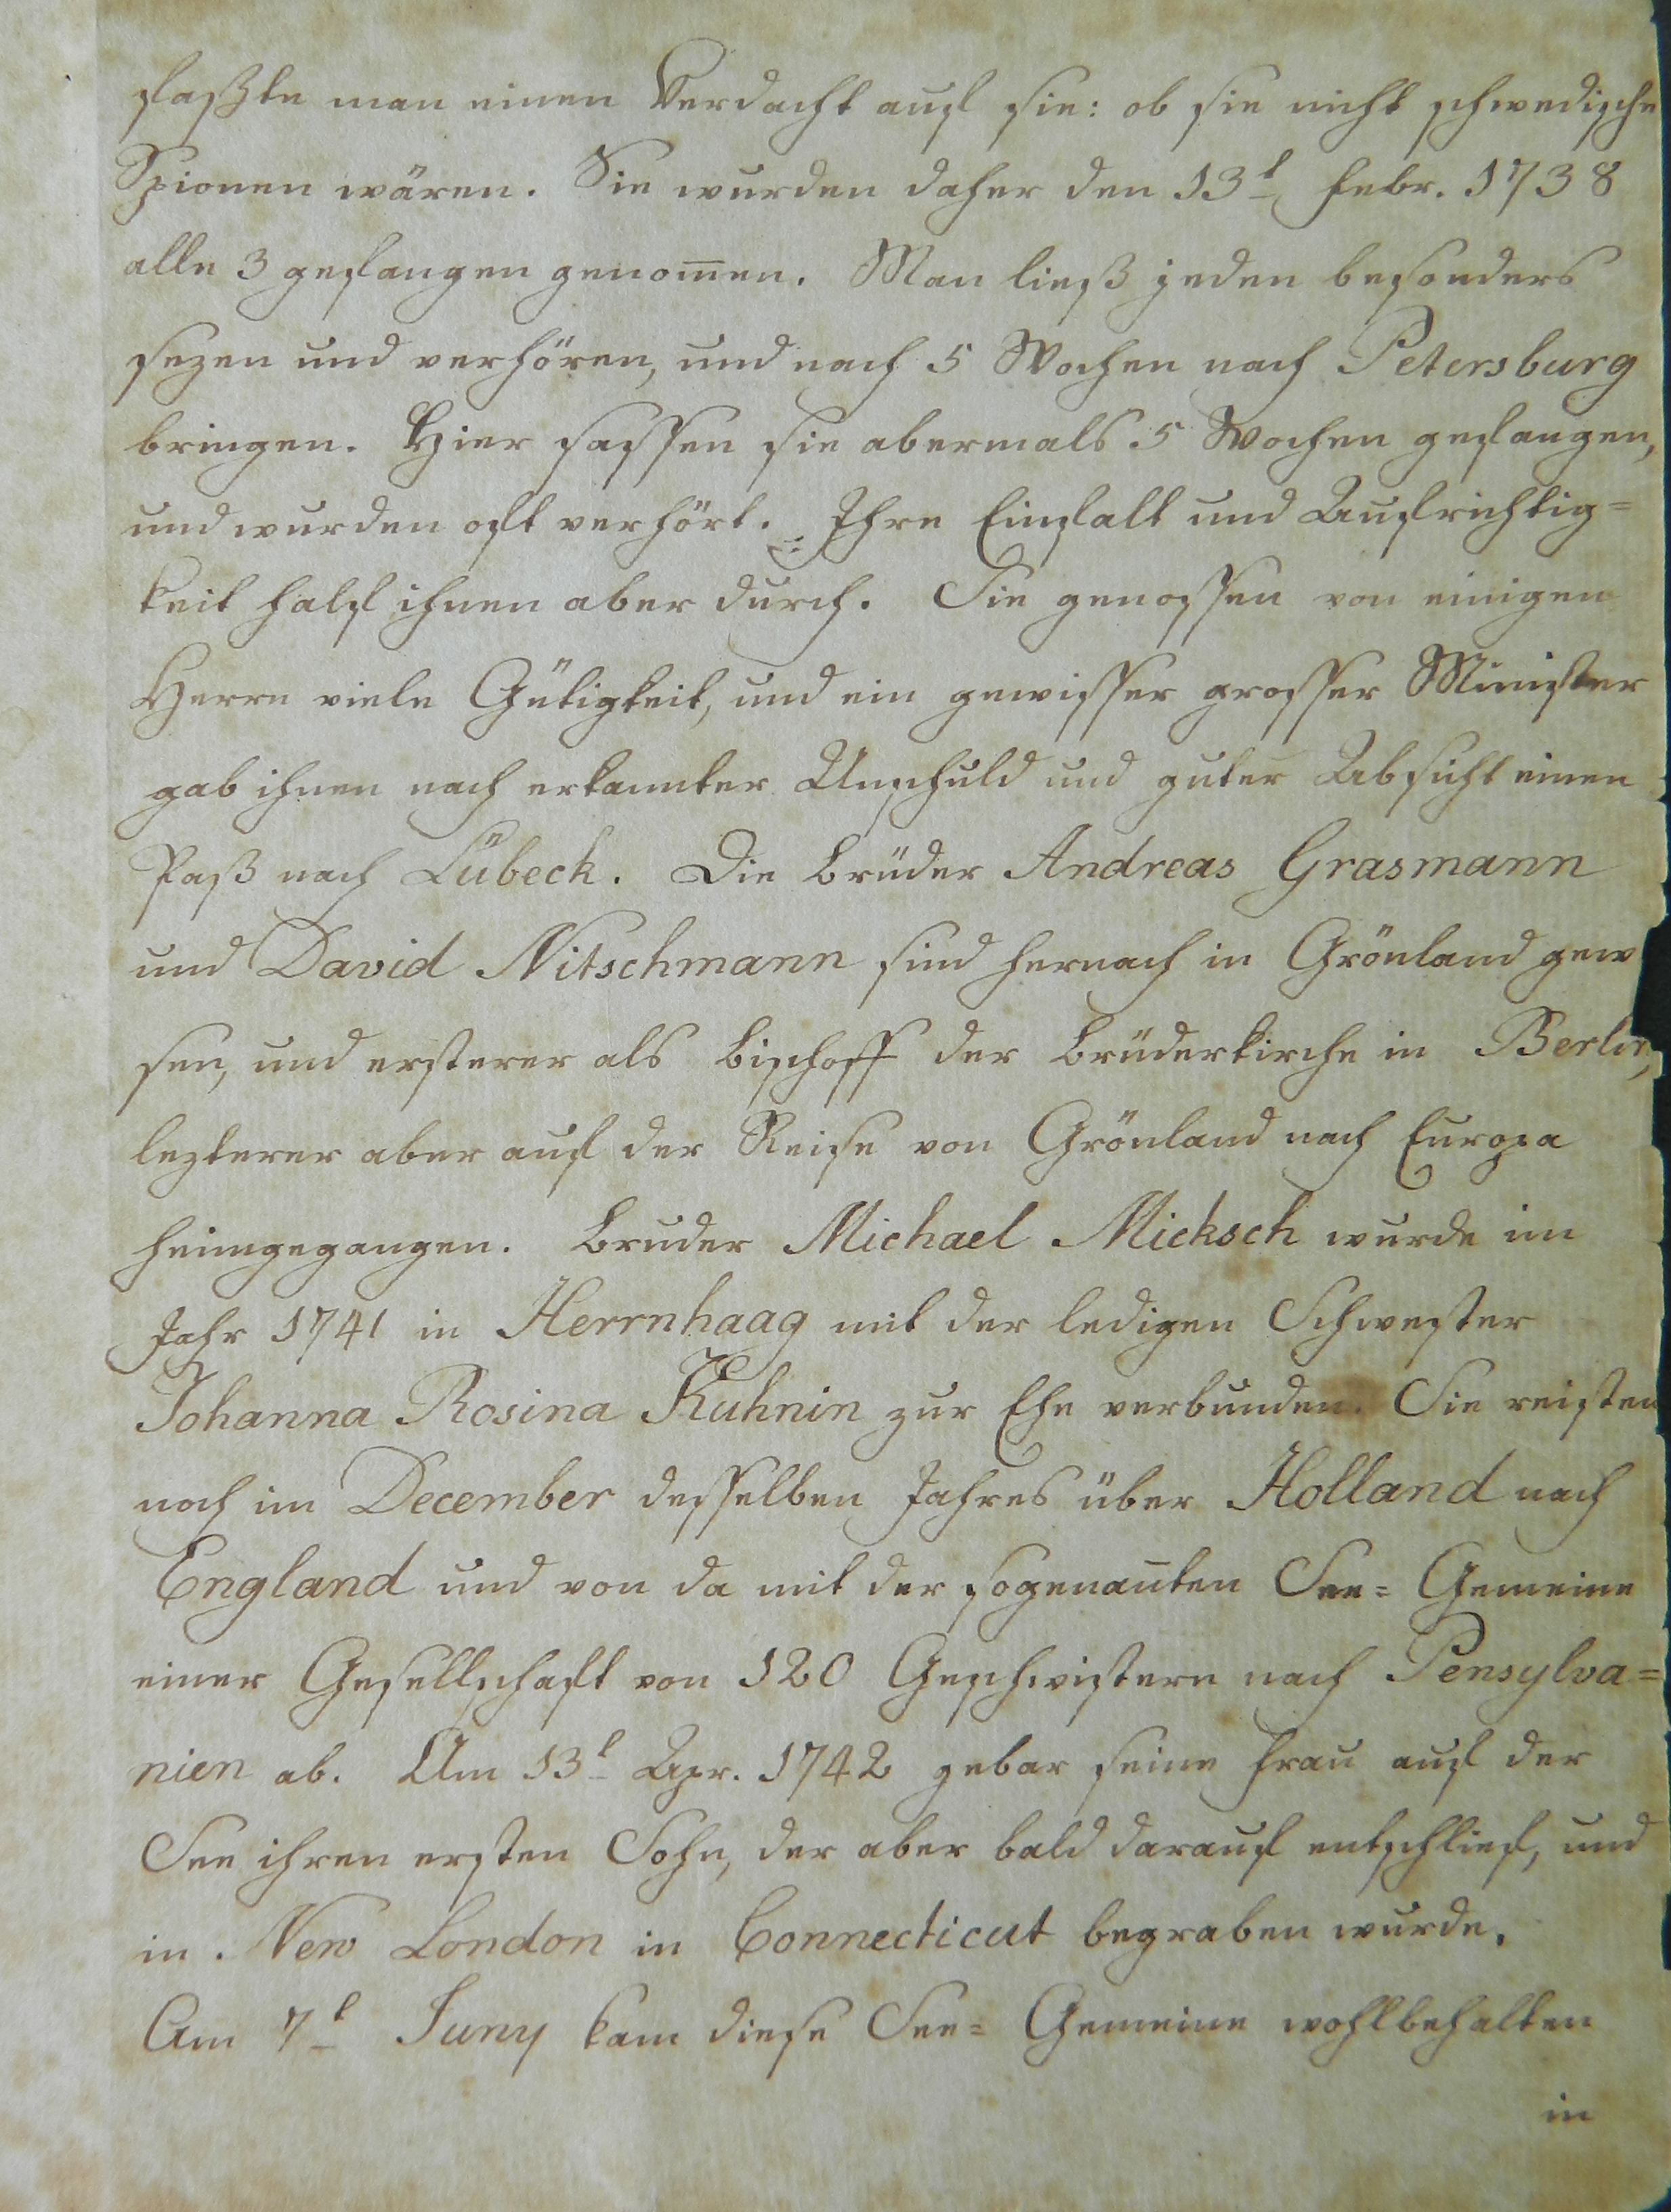 faßte man einen Verdacht auf sie: ob sie nicht schwedische
Spionen wären. Sie wurden daher den 13t Febr. 1738
alle 3 gefangen genom̅en. Man ließ jeden besonders
sezen und verhören, und nach 5 Wochen nach Petersburg
bringen. Hier sassen sie abermals 5 Wochen gefangen,
und wurden oft verhört. Ihre Einfalt und Aufrichtig=
keit half ihnen aber durch. Sie genossen von einigen
Herrn viele Gütigkeit, und ein gewisser grosser Minister
gab ihnen nach erkannter Unschuld und guter Absicht einen
Paß nach Lübeck. Die Brüder Andreas Grasmann
und David Nitschmann sind hernach in Grönland gew
sen, und ersterer als Bischoff der Brüderkirche in Berlin,
lezterer aber auf der Reise von Grönland nach Europa
heimgegangen. Bruder Michael Micksch wurde im
Jahr 1741 in Herrnhaag mit der ledigen Schwester
Johanna Rosina Kuhnin zur Ehe verbunden. Sie reisten
noch im December desselben Jahres über Holland nach
England und von da mit der sogenan̅ten See= Gemeine
einer Gesellschaft von 120 Geschwistern nach Pensylva=
nien ab. Am 13t Apr. 1742 gebar seine Frau auf der
See ihren ersten Sohn, der aber bald darauf entschlief, und
in New London in Connecticut begraben wurde.
Am 7t Juny kam diese See= Gemeine wohlbehalten
in